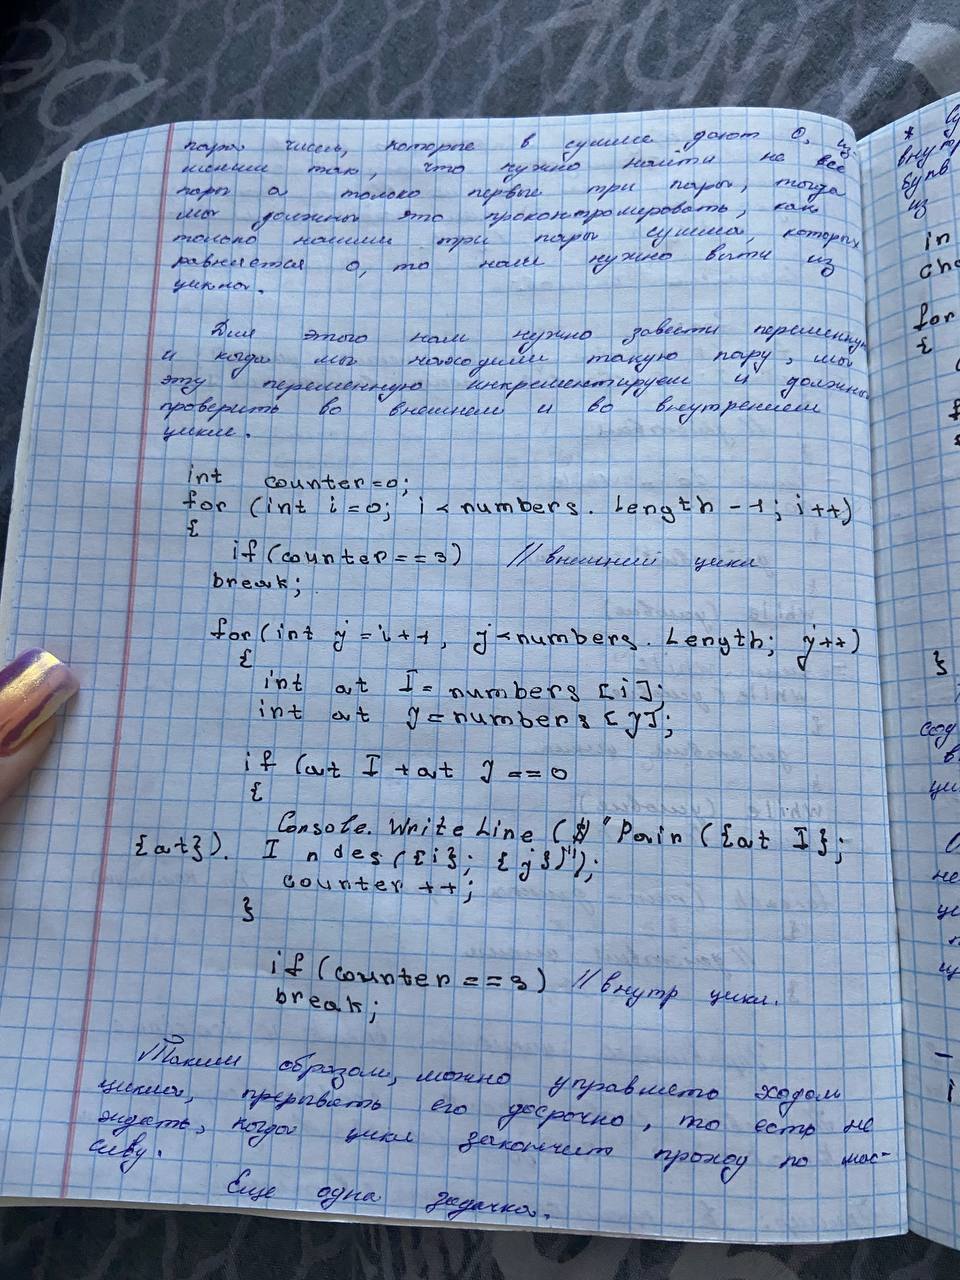 пары чисел, которые в сумме дают 0, из-
меним так, что нужно найти не все
пары а только первые три пары, тогда
мы должны это проконтролировать, как
только нашли три пары сумма, которых
равняется 0, то нам нужно выти из
цикла.
Для этого нам нужно завести переменную
и когда мы находили такую пару, мы
эту переменную инкрементируем и должны
проверить во внешнем и во внутреннем
цикле.
int counter=0;
for (int i=0; i<numbers. Length -1; i++)
{
if(counter==3) // внешний цикл
break;
for(int j=i++, j<numbers. Length; j++)
{
int at I=numbers [i];
int at J=numbers [J];
if (at I +at J ==0
{
Console. Write Line ($ "Pain ({at I};
{at}). I n des({i}; {j})");
counter ++;
}
if (counter ==3) //внутр цикл.
break;
Таким образом, можно управлять ходом
цикла, прерывать его досрочно, то есть не
ждать, когда цикл закончит проход по мас-
сиву.
Еще одна задачка.
* 
внутр
букв
из
in
cha
for
{
}
сод
в
ци
не
це